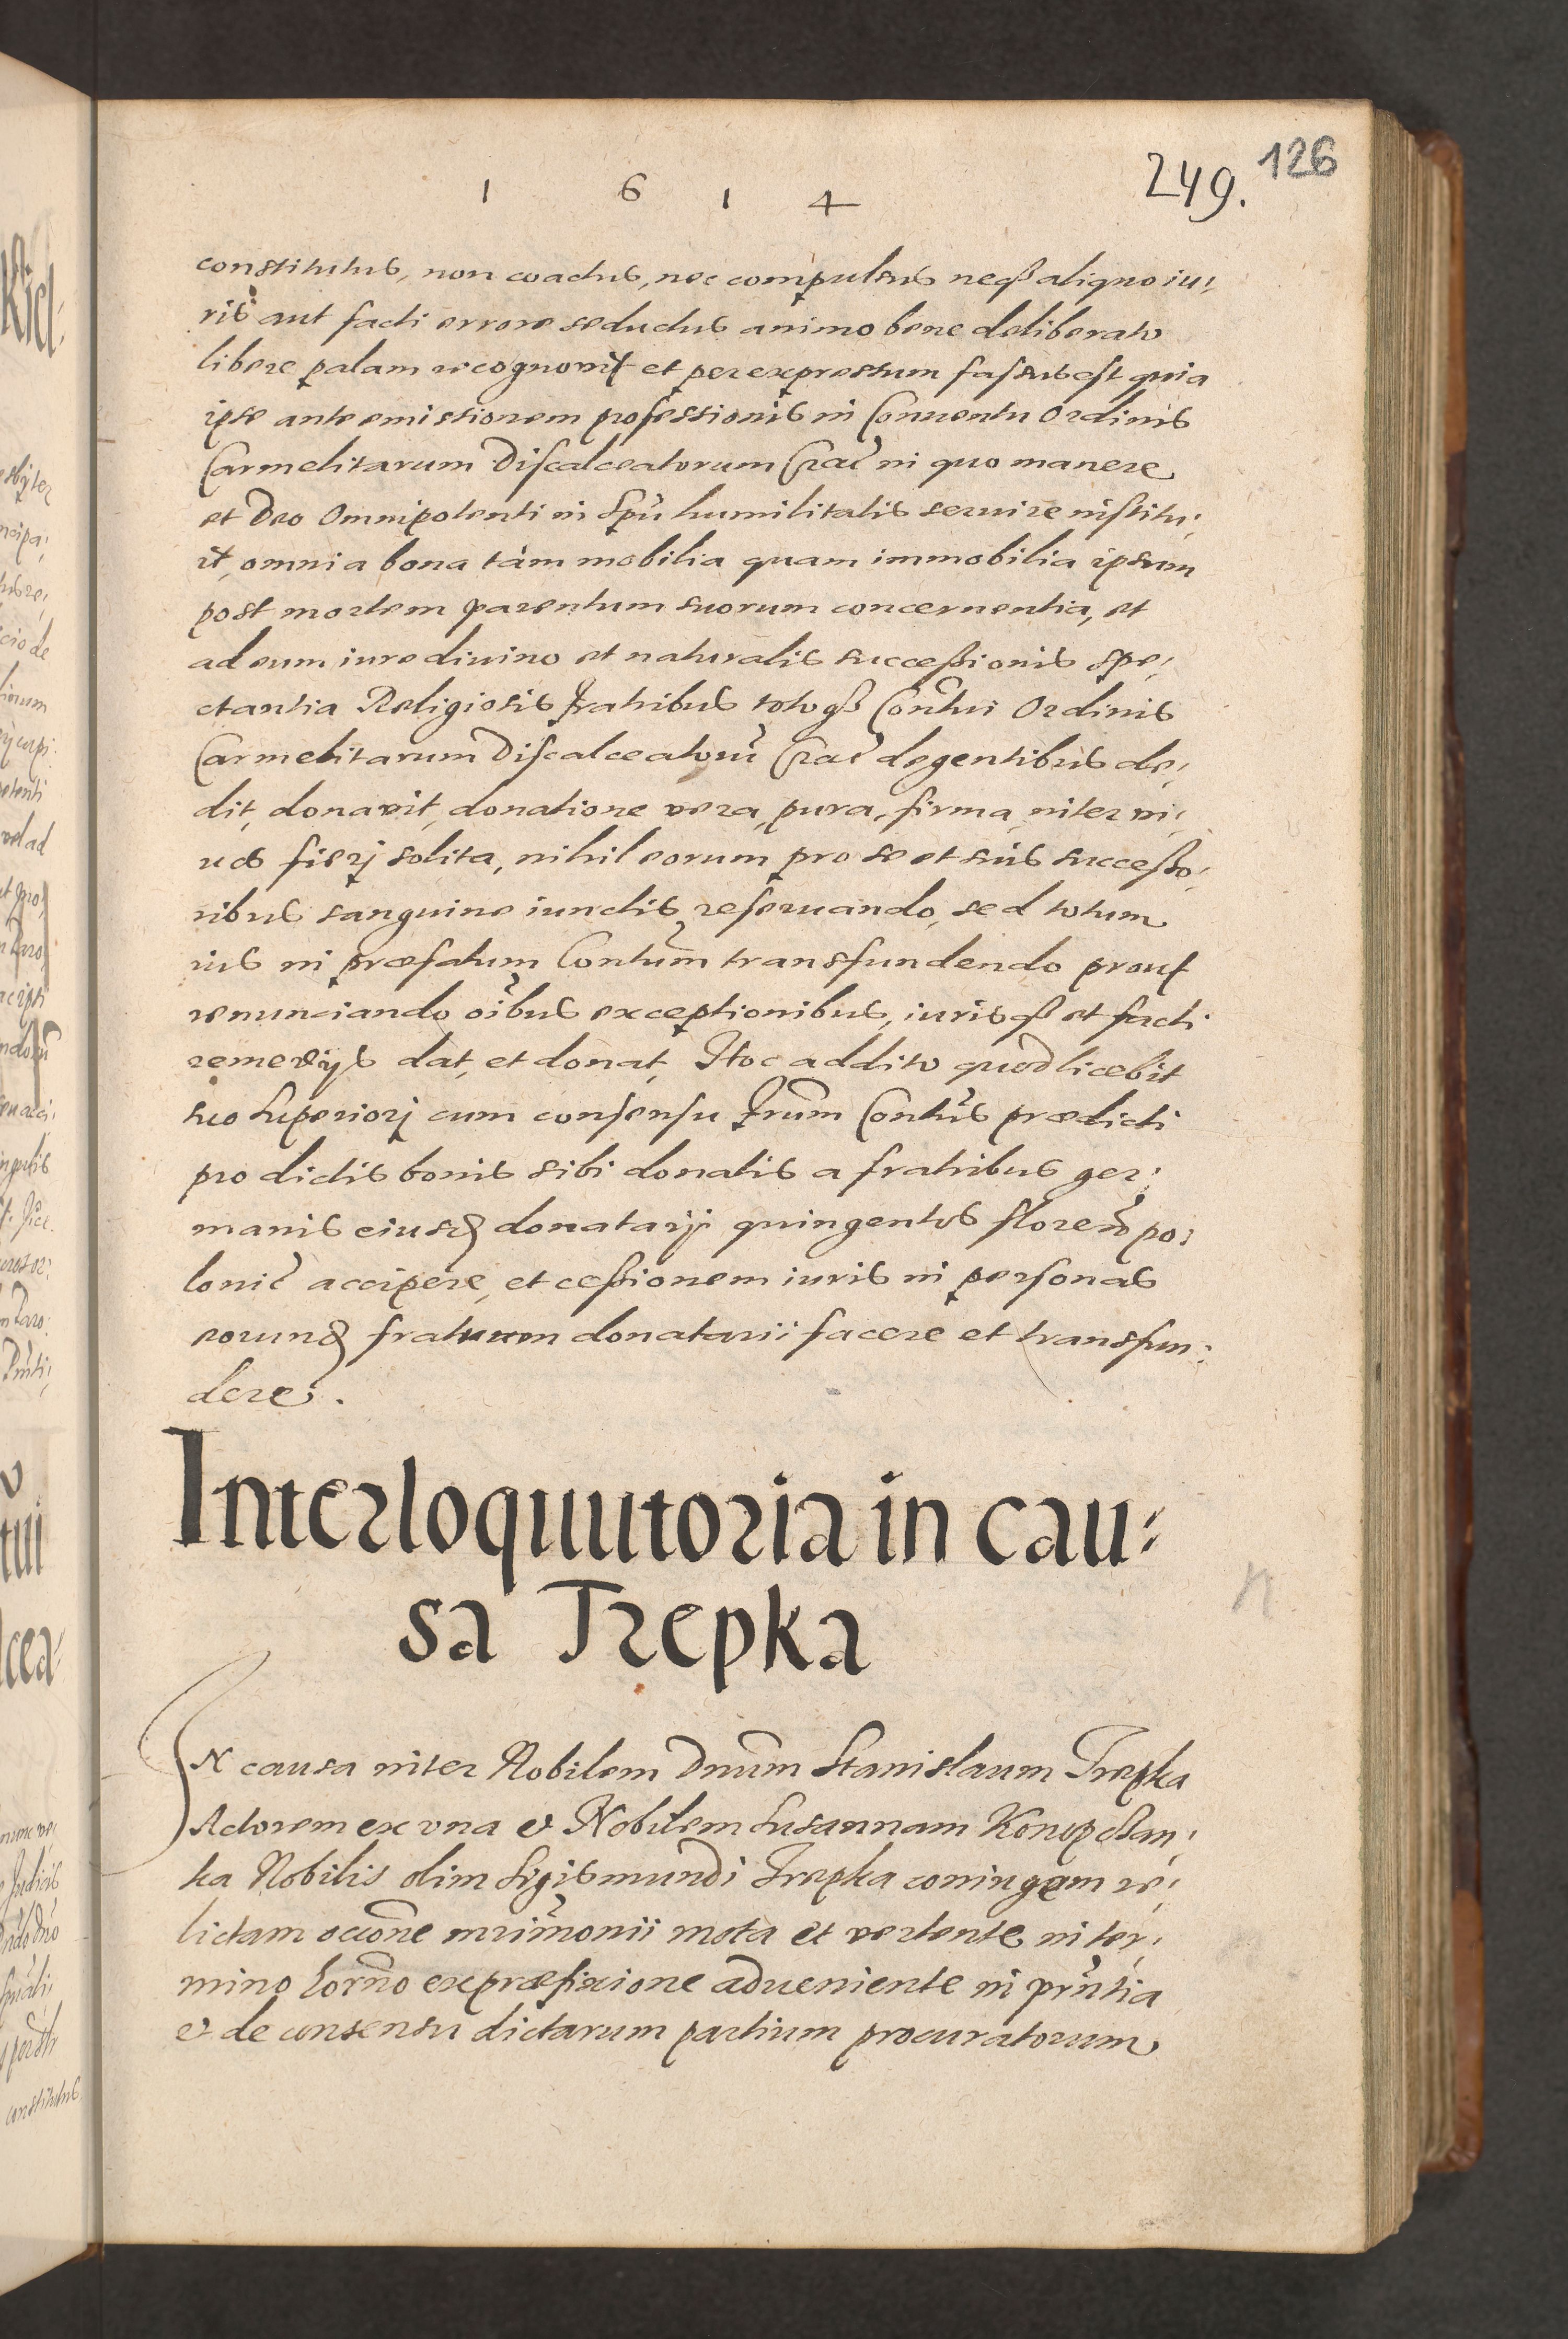 1 6 1 4
249. 126
constitutus, non coactus, nec compulsus neqȝ aliquo iu:
ris aut facti errore seductus animo bene deliberato
libere palam recognovit et per expressum fassus est quia
ipse ante emissionem professionis in Conuentu Ordinis
Carmelitarum Discalceatorum Crac̃ in quo manere
et Deo Omnipotenti in Spũ humilitatis seruire institu:
it, omnia bona tàm mobilia quam immobilia ipsum
post mortem parentum suorum concernentia, et
ad eum iure diuino et naturalis successionis spe:
ctantia Religiosis fratribus totoqȝ Contũi Ordinis
Carmelitarum Discalceatorũ Crac̃ degentibus de:
dit, donavit, donatione vera, pura, firma, inter vi:
uos fierj solita, nihil eorum pro se et suis successo:
ribus sanguine iunctis reseruando, sed totum
ius in præfatum Contum̃ transfundendo prout
renunciando oĩbus exceptionibus, iurisqȝ et facti
remedijs dat, et donat, Hoc addito quod licebit
suo Superiorj cum consensu frum̃ Contũs prædicti
pro dictis bonis sibi donatis a fratribus ger:
manis eiusd donatarij quingentos floren̄ po:
lonic̃ accipere, et cessionem iuris in personas
eorund fratrum donatarii facere et transfun:
dere.
Interloquutoria in cau:
sa Trepka
IN causa inter Nobilem Dnum̃ Stanislaum Trepka
Actorem ex vna et Nobilem Susannam Konopczan:
ka Nobilis olim Sigismundi Trepka coniugem re:
lictam occõne mrĩmonii mota et vertente in ter:
mino horno ex præfixione adueniente in prñtia
et de consensu dictarum partium procuratorum